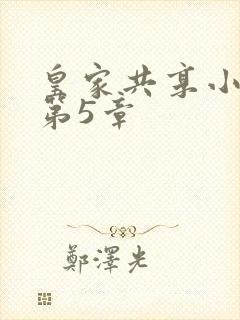 皇家共享小
第5章
鄭澤光